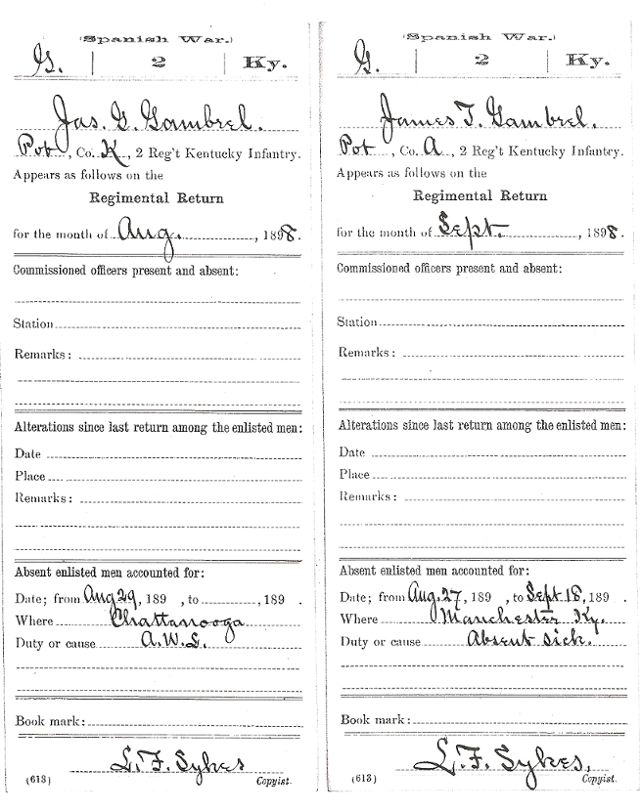 (Spanish War.)
G. | 2 | Ky.
Jas. G. Gambrel.
Pvt, Co. K, 2 Reg't Kentucky Infantry.
Appears as follows on the
Regimental Return
for the month of Aug. , 1898.
Commissioned officers present and absent:
Station
Remarks:
Alterations since last return among the enlisted men:
Date
Place
Remarks:
Absent enlisted men accounted for:
Date; from Aug 29, 189 , to , 189 .
Where Chattanooga
Duty or cause A.W.L.
Book mark:
L. F. Sykes
(613) Copyist.
(Spanish War.)
G. | 2 | Ky.
James T. Gambrel.
Pvt, Co. A, 2 Reg't Kentucky Infantry.
Appears as follows on the
Regimental Return
for the month of Sept. , 1898.
Commissioned officers present and absent:
Station
Remarks:
Alterations since last return among the enlisted men:
Date
Place
Remarks:
Absent enlisted men accounted for:
Date; from Aug. 27, 189 , to Sept 18, 189 .
Where Manchester Ky.
Duty or cause Absent sick.
Book mark:
L. F. Sykes,
(613) Copyist.